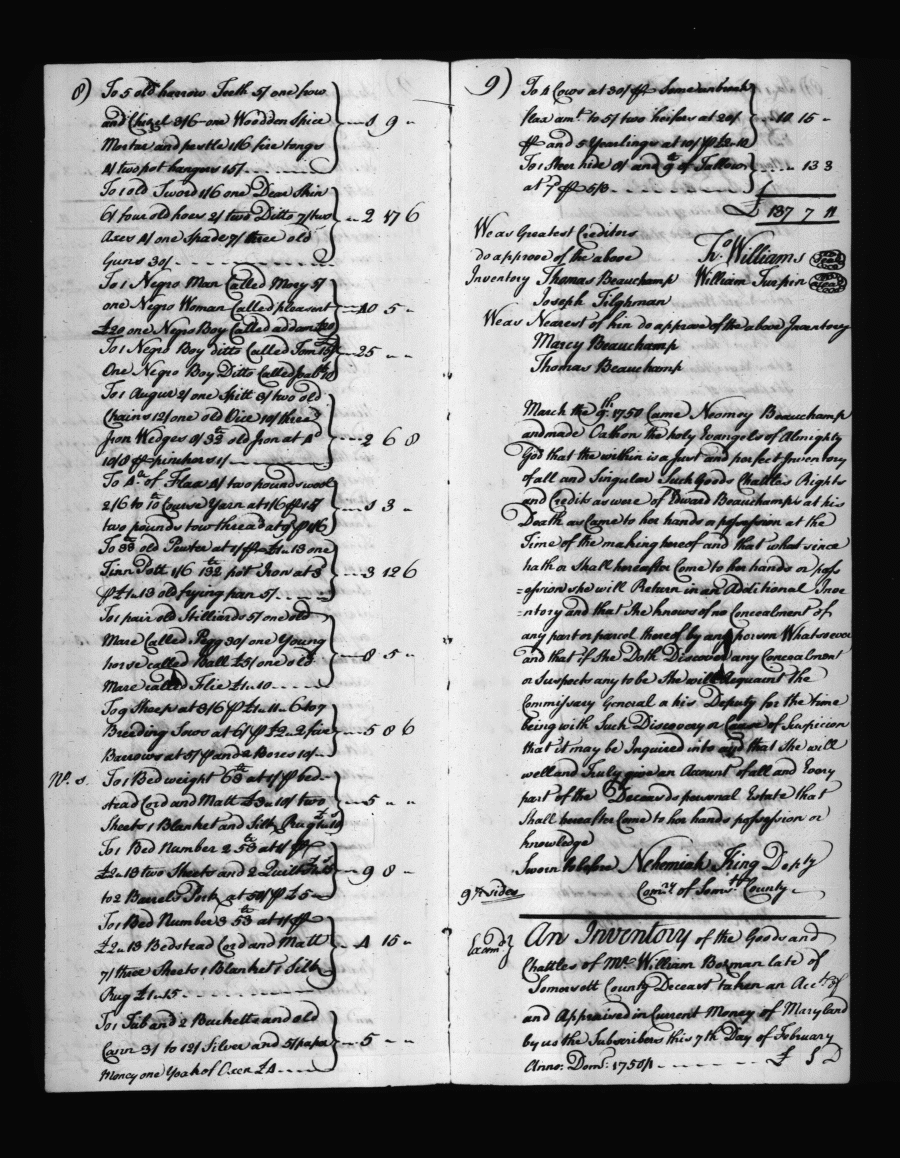 8)
To 5 old harrow Teeth 5/ one how
and Chizel 3/6 one Woodden Spice
Mortar and pestle 1/6 fire tongs --- 1 9 "
4/ two pot hangers 15/ ----
To 1 old Sword 1/6 one Dear Skin
6/ four old hoes 2/ two Ditto 7/ two --- 2 17 6
Axes 4/ one Spade 7/ three old
Guns 30/ ----
To 1 Negro Man Called Mory 5/
one Negro Woman Called pleasent --- 40 5 "
£20 one Negro Boy Called addam £20
To 1 Negro Boy ditto Called Tom 15£ --- 25 " "
One Negro Boy Ditto Called £10
To 1 Augur 2/ one Spitt 3/ two old
Chains 12/ one old Vice 10/ three
Iron Wedges 9/ 32 lb old Iron at 4d --- 2 6 8
10/8 pinchers 1/ ----
To 4 lb of Flax 4/ two pounds wool
2/6 to 10 lb Course Yarn at 1/6 --- 1 3 "
two pounds tow thread at 9d 1/6
To 33 lb old Pewter at 1/ £1 " 13 one
Tinn Pott 1/6 132 lb pot Iron at 3 --- 3 12 6
£1 " 13 old frying pan 5/ ----
To 1 pair old Stilliards 5/ one old
Mare Called Pegg 30/ one Young --- 8 5 "
horse called Ball £5/ one old
Mare called Flie £1 " 10 ----
To 9 Sheep at 3/6 £1 " 11 " 6 to 7
Breeding Sows at 6/ £2 " 2 five --- 5 8 6
Barrows at 5/ and 2 Bores 10/ --
No. 1. To 1 Bed weight 63 lb at 1/ bed-
stead Cord and Matt £3 " 10/ two --- 5 " "
Sheets 1 Blanket and Silk Rug £1 " 10
To 1 Bed Number 2 53 lb at 1/
£2 " 13 two Sheets and 2 Quilts --- 9 8 "
to 2 Barrels Pork at 50/ £5 --
To 1 Bed Number 3 53 lb at 1/
£2 " 13 Bedstead Cord and Matt --- 4 15 "
7/ three Sheets 1 Blanket 1 Silk
Rug £1 " 15 ----
To 1 Tab and 2 Bucketts and old
Cann 3/ to 12/ Silver and 5/ paper --- 5 " "
Money one Yoak of Oxen £4 ----
9)
To 4 Cows at 30/ Some unbroak
flax amt. to 5/ two heifers at 20/ --- 10 15 "
and 5 Yearlings at 10/ £2 " 10
To 1 Steer hide 8/ and 9 lb of Tallow --- " 13 3
at 7d 5/3 ----
£ 137 7 11
We as Greatest Creditors
do approve of the above Tho. Williams Seal
Inventory Thomas Beauchamp William Turpin Seal
Joseph Tilghman
We as Nearest of kin do approve of the above Inventory
Marcy Beauchamp
Thomas Beauchamp
March the 9th. 1750 Came Neomey Beauchamp
and made Oath on the holy Evangels of Almighty
God that the within is a Just and perfect Inventory
of all and Singular Such Goods Chattles Rights
and Credits as were of Edward Beauchamps at his
Death as Came to her hands a possession at the
Time of the making hereof and that what since
hath or Shall hereafter Come to her hands or poss
=ession she will Return in an Additional Inve
=ntory and that She knows of no Concealment of
any part or parcel thereof by any person Whatsoever
and that if She Doth Discover any Concealment
or Suspects any to be She will Acquaint the
Commissary General a his Deputy for the time
being with Such Discovery or Cause of Suspicion
that it may be Inquired into and that She will
well and Truly give an Account of all and Every
part of the Deceaseds personal Estate that
Shall hereafter Come to her hands possession or
knowledge
Sworn to before Nehemiah King Depty
Comry of Somst. County
9 sides
Examd. An Inventory of the Goods and
Chattles of Mr. William Bozman late of
Somersett County Deceast taken an Acct. of
and Appraised in Current Money of Maryland
by us the Subscribers this 7th Day of February
Anno: Dom: 1750/1 ---- £ S D